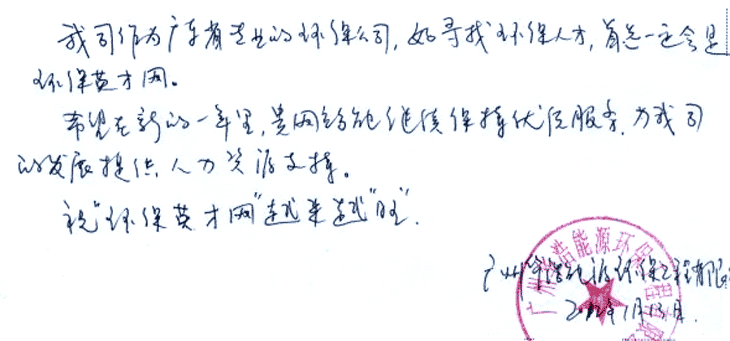 我司作为广东省专业的环保公司，如寻找环保人才，首选一定会是
环保英才网。
希望在新的一年里，贵网站能继续保持优质服务，为我司
的发展提供人力资源支持。
祝"环保英才网"越来越"旺"．
广州华浩能源环保工程有限
2012年1月13日．
浩能源环保工程
广州